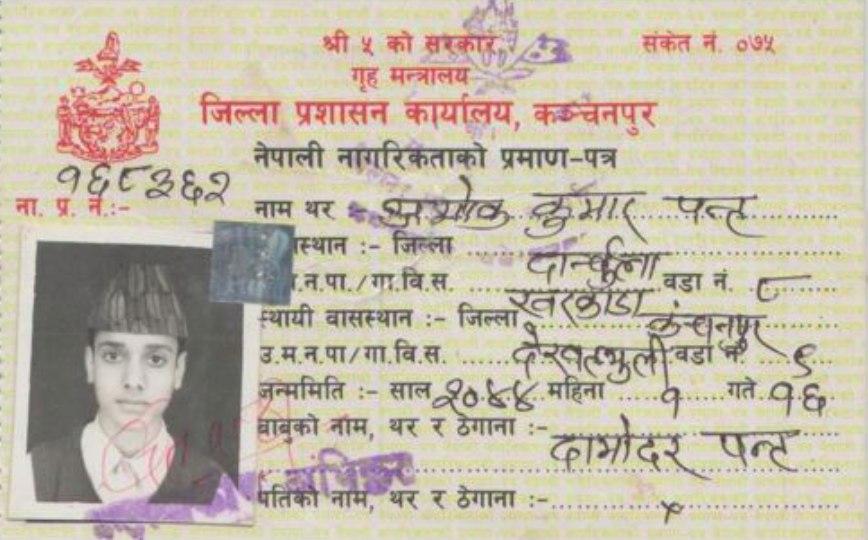 श्री ५ को सरकार
संकेत नं. ०७५
गृह मन्त्रालय
जिल्ला प्रशासन कार्यालय, कञ्चनपुर
नेपाली नागरिकताको प्रमाण-पत्र
१६८३६२
ना. प्र. नं.:-
नाम थर कुमार पन्त
स्थान :- जिल्ला दार्चुला
न.पा./गा.वि.स. वडा नं. ८
स्थायी वासस्थान :- जिल्ला कंचनपुर
उ.म.न.पा/गा.वि.स. वडा नं. ९
जन्ममिति :- साल २०४४ महिना १ गते १६
बाबुको नाम, थर र ठेगाना :-
दामोदर पन्त
पतिको नाम, थर र ठेगाना :- ×